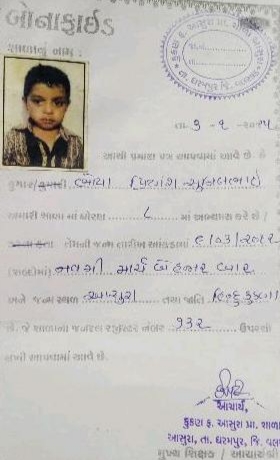 બોનાફાઇડ
શાળાનું નામ :
કુકણા ફ. આસુરા પ્રા. શાળા
તા. ધરમપુર જિ. વલસાડ
તા. ૩ - ૧ - ૨૦૧૫
આથી પ્રમાણ પત્ર આપવામાં આવે છે કે
કુમાર/કુમારી
અમારી શાળા માં ધોરણ ૮ માં અભ્યાસ કરે છે /
તેમની જન્મ તારીખ આંકડામાં ૯/૦૩/૨૦૦૨
(શબ્દોમાં) નવમી માર્ચ બે હજાર બે
અને જન્મ સ્થળ આસુરા તથા જાતિ હિન્દુ કુકણા
છે, જે શાળાના જનરલ રજીસ્ટર નંબર ૧૩૨ ઉપરથી
લખી આપવામાં આવે છે.
આચાર્ય,
કુકણ ફ. આસુરા પ્રા. શાળા
આસુરા, તા. ધરમપુર, જિ. વલ
મુખ્ય શિક્ષક / આચાર્યશ્રી